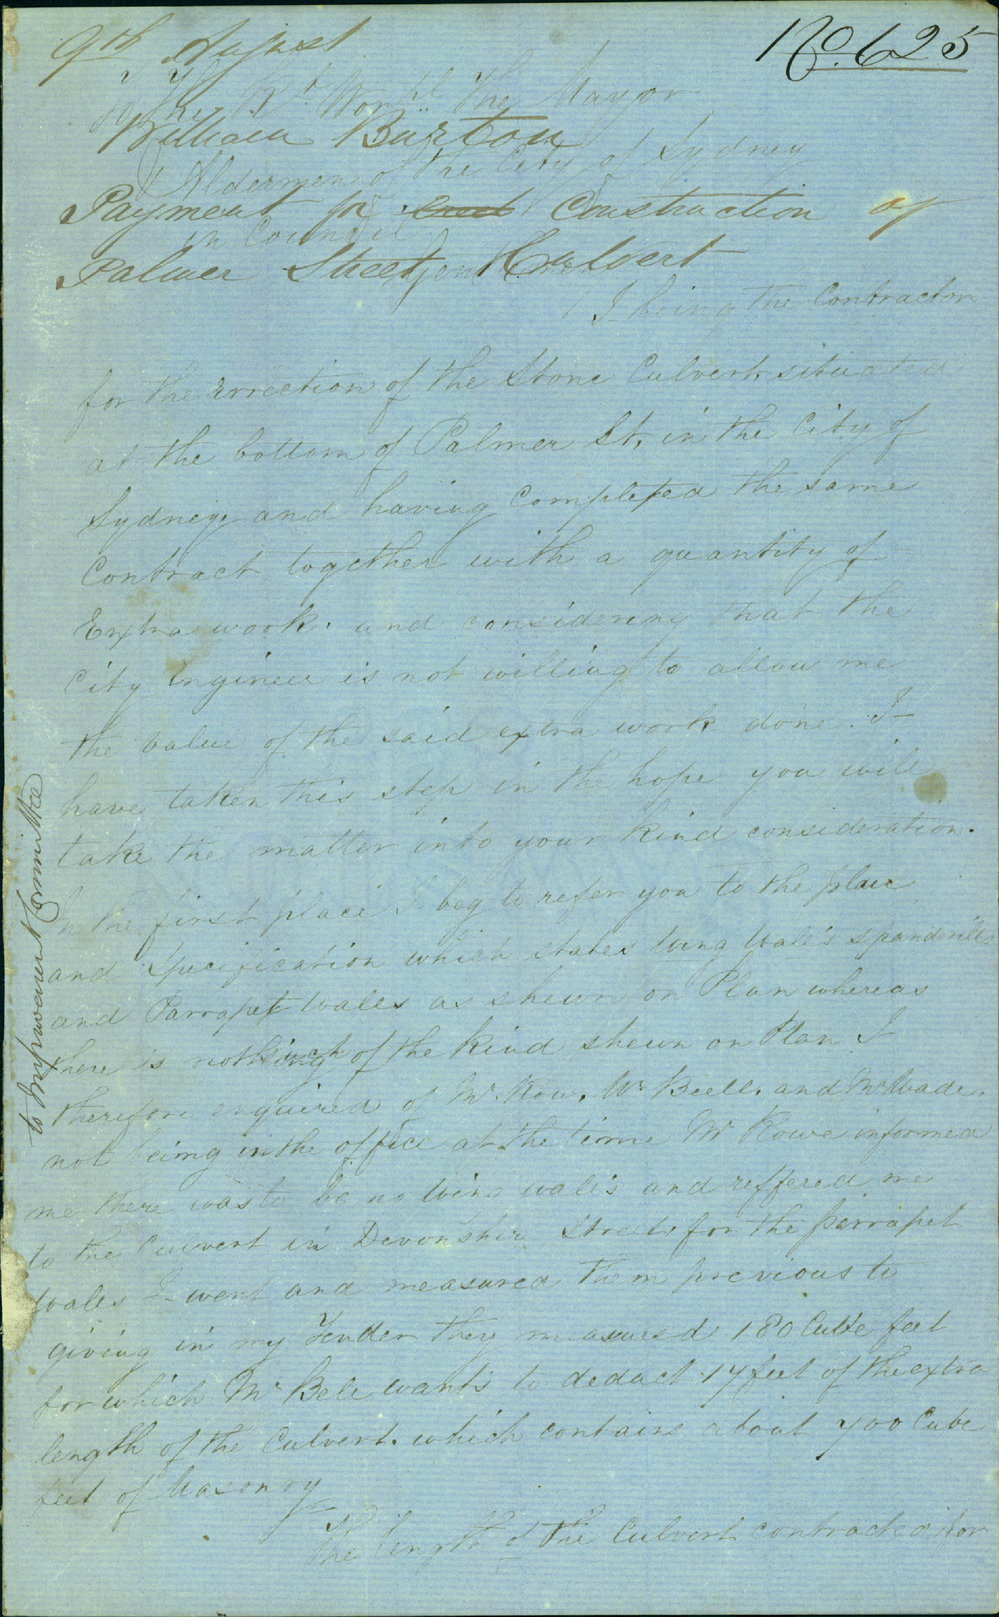 9th August
No. 625
To The Rt. Worpl. The Mayor
William Burton
& Aldermen of the City of Sydney
Payment for Construction of
in Council
Palmer Street Culvert
Gentlemen
I being the Contractor
for the Errection of the Stone Culvert situated
at the bottom of Palmer St. in the City of
Sydney, and having Completed the same
Contract together with a quantity of
Extra work. and considering that the
City Engineer is not willing to allow me
the value of the said extra work done. I
have taken this step in the hope you will
take the matter into your kind consideration.
In the first place I beg to refer you to the plan
and Specification which states Wing Wales spandrills
and Parrapet Wales as shewn on Plan whereas
there is nothing of the kind shewn on Plan I
therefore enquired of Mr. Row. Mr Bell. and Mr Wade.
not being in the office at the time Mr Rowe informed
me there was to be no Wing wales and reffered me
to the Culvert in Devonshire Street for the parrapet
Wales I went and measured them previous to
giving in my Tender they measured 180 Cube feet
for which Mr Bell wants to deduct 17 feet of the extra
length of the Culvert. which contains about 700 Cube
feet of Masonry
The length of the Culvert contracted for
to Improvement Committee